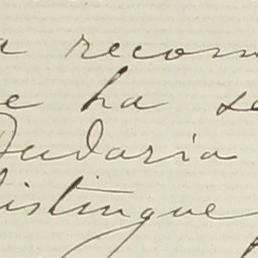 a recom
e ha se
Dudaria
distingue